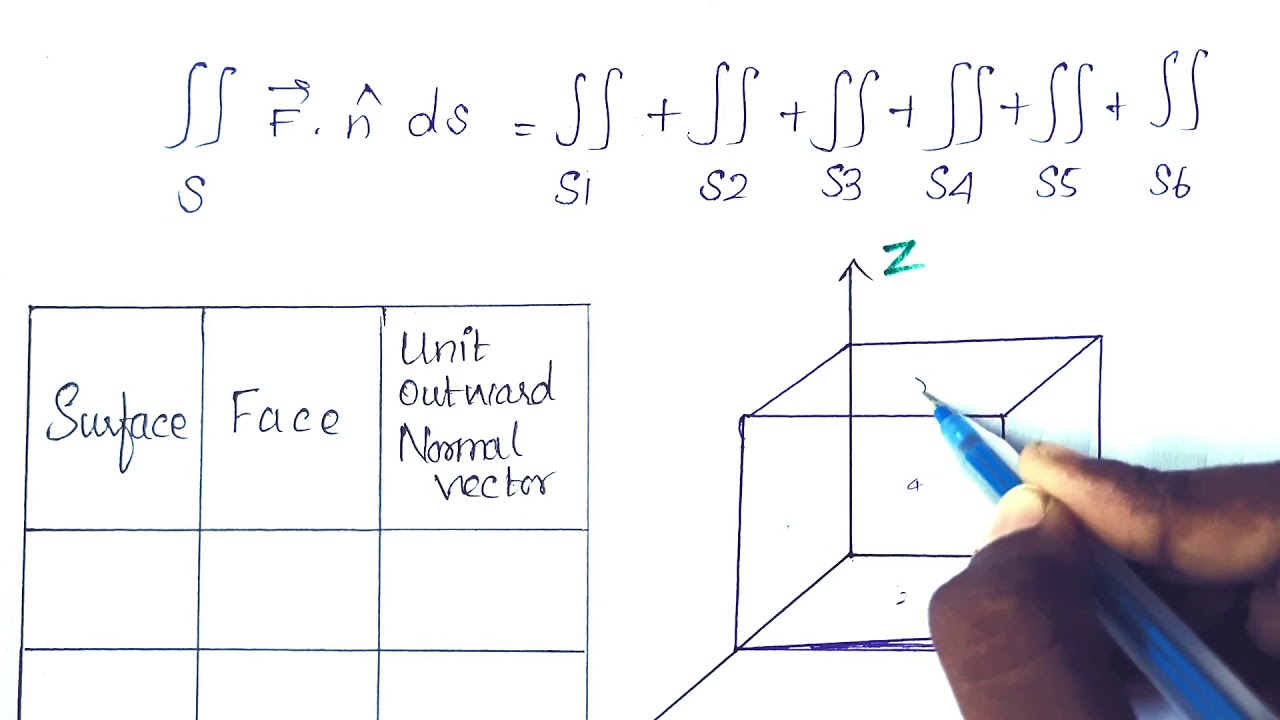 ∬ F⃗ . n̂ ds = ∬ + ∬ + ∬ + ∬ + ∬ + ∬
S S1 S2 S3 S4 S5 S6
Z
Surface
Face
Unit
Outward
Normal
vector
4